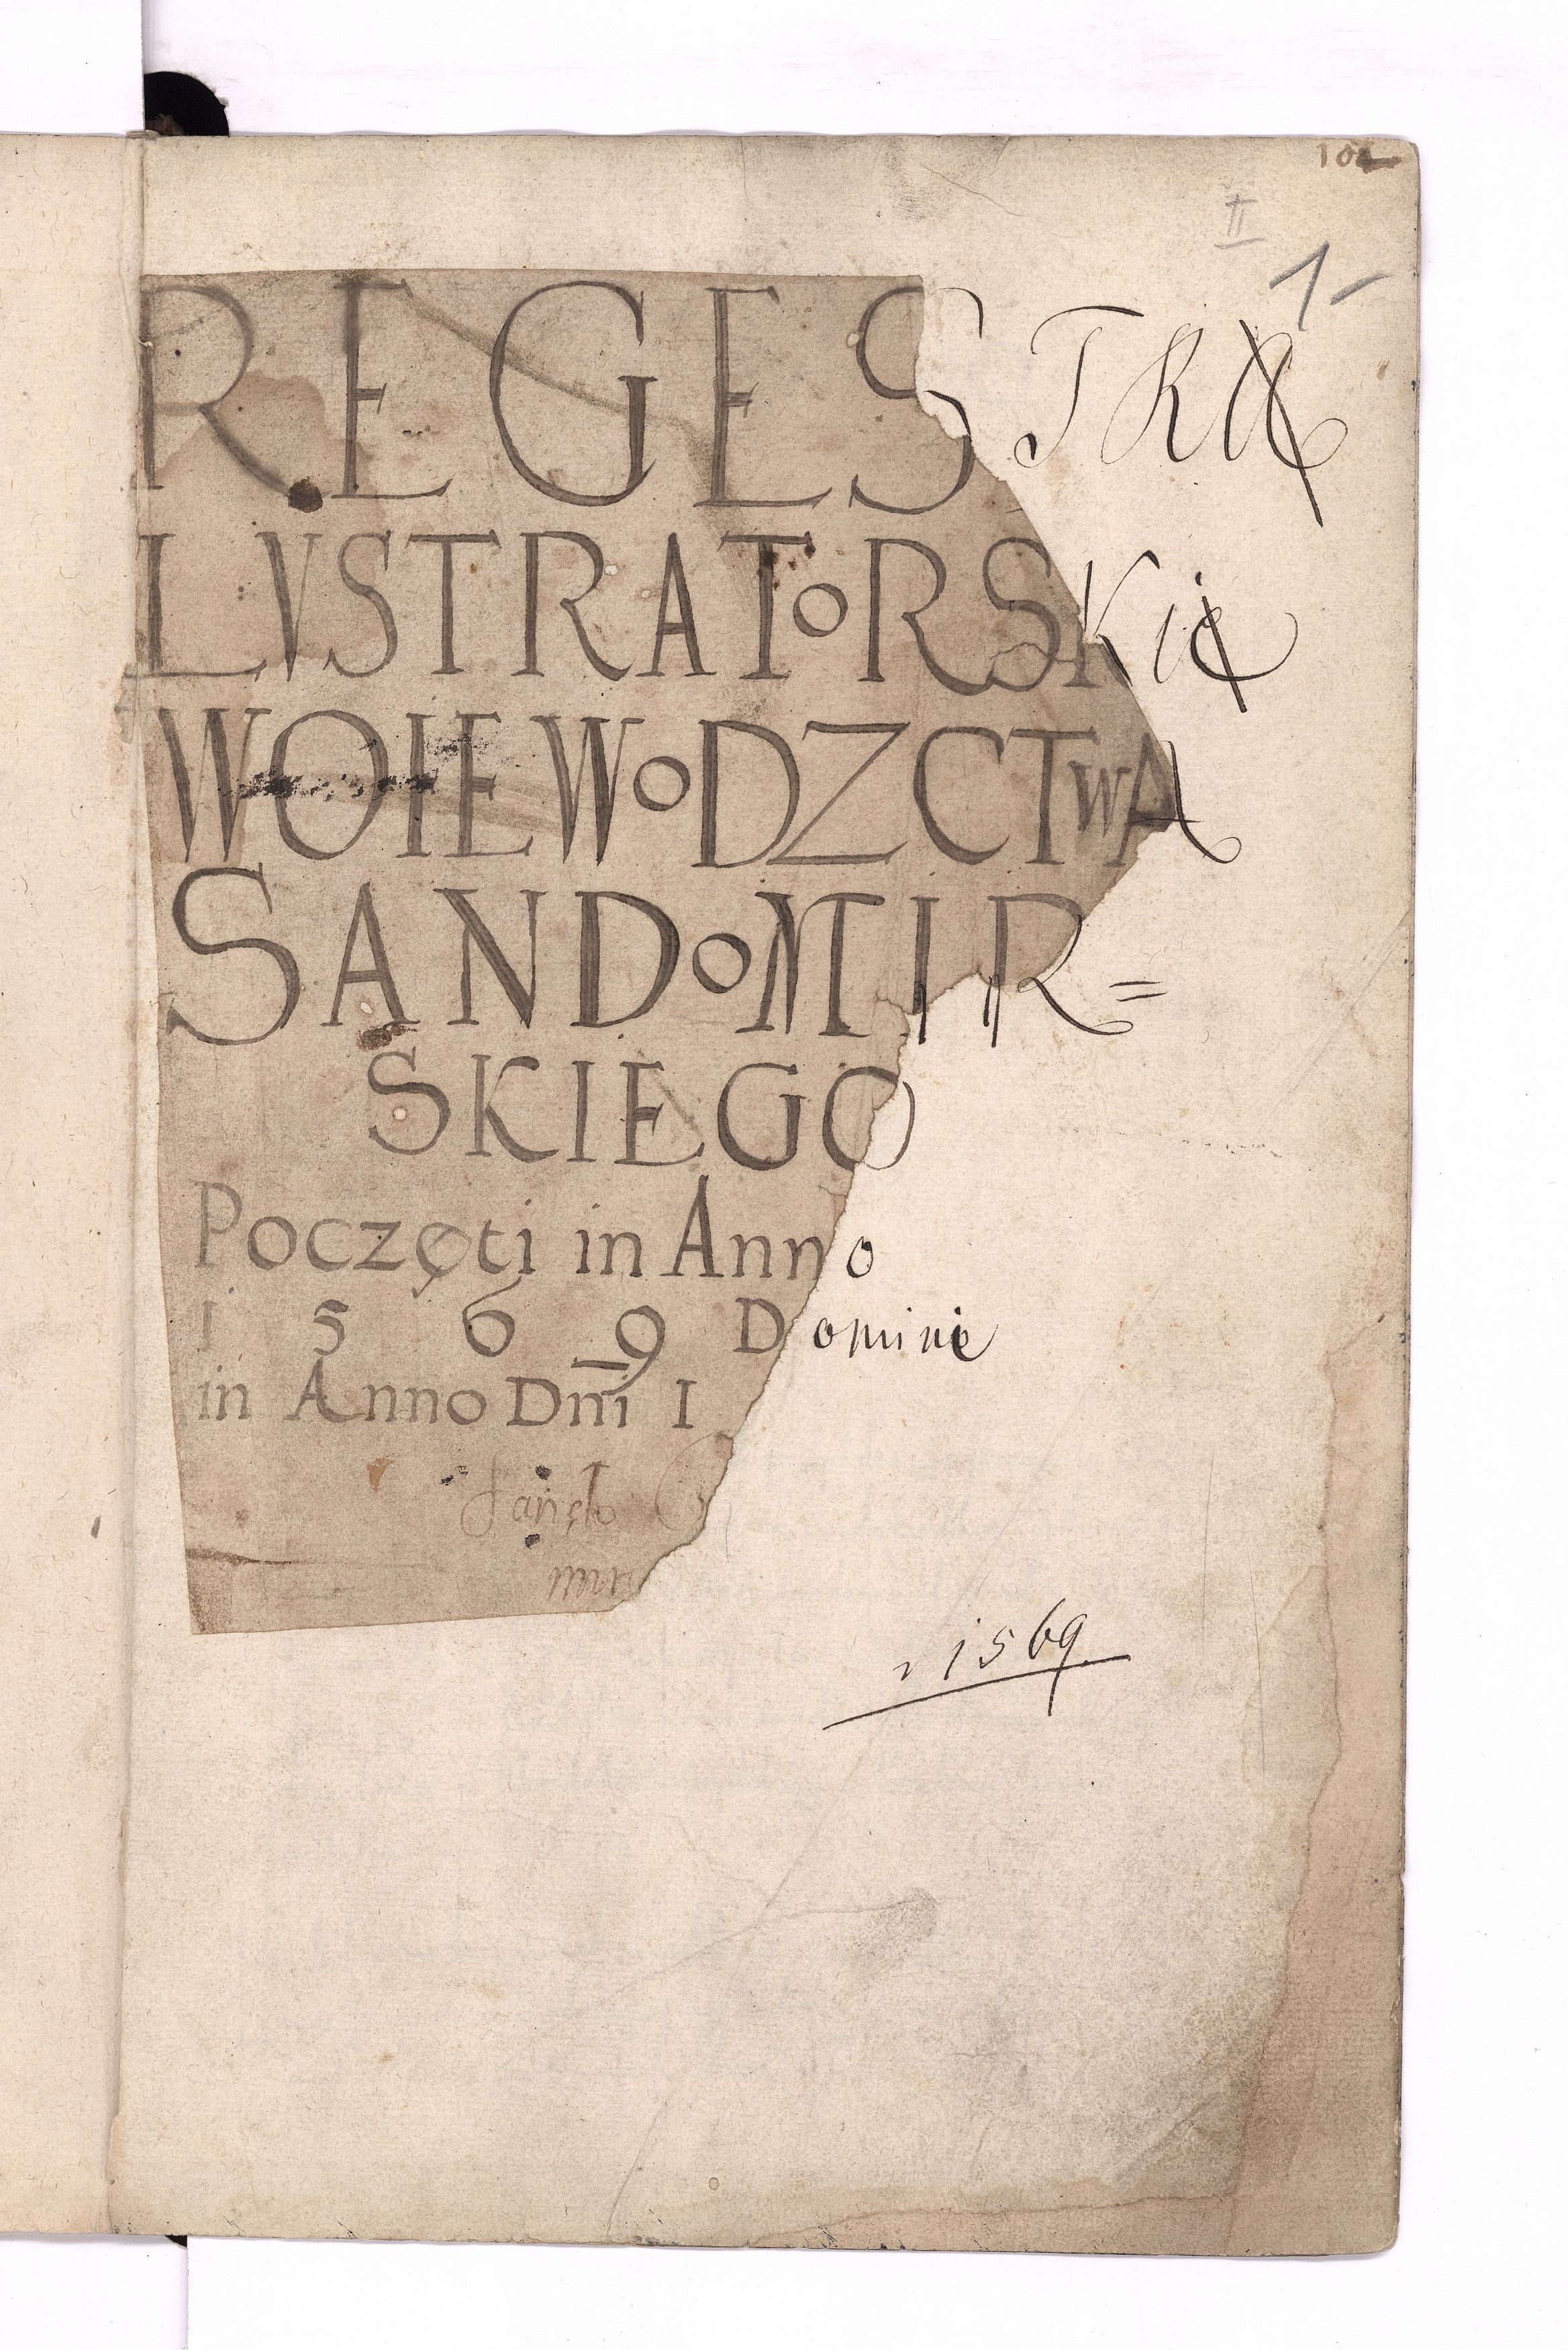 II
1-
REGESTRA
LVSTRAToRSKie
WOIEWoDZCTwA
SANDoMIR=
SKIEGO
Poczęti in Anno
1 5 6 9 Domini
in Anno Dni I
1569